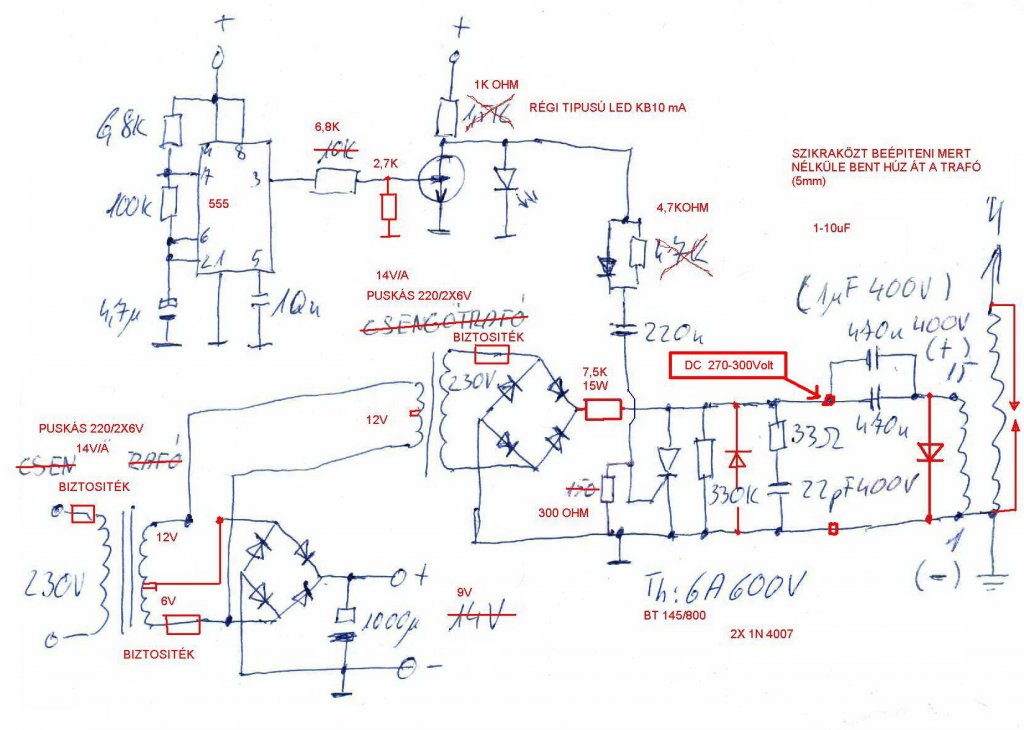 +
+
1K OHM
1,2K
RÉGI TIPUSÚ LED KB10 mA
6,8K
6,8K
10K
4
8
7
3
2,7K
555
100K
6
2 1
5
4,7µ
10n
SZIKRAKÖZT BEÉPITENI MERT
NÉLKÜLE BENT HÚZ ÁT A TRAFÓ
(5mm)
4,7KOHM
4,7K
1-10uF
14V/A
PUSKÁS 220/2X6V
CSENGŐTRAFÓ
BIZTOSITÉK
230V
220n
(1µF 400V)
470n 400V
(+)
DC 270-300Volt
7,5K
15W
470n
12V
PUSKÁS 220/2X6V
14V/A
CSEN
RAFÓ
BIZTOSITÉK
33Ω
330K
22pF400V
150
300 OHM
12V
230V
6V
BIZTOSITÉK
+
1000µ
-
9V
14V
Th: 6A 600V
BT 145/800
2X 1N 4007
1
(-)